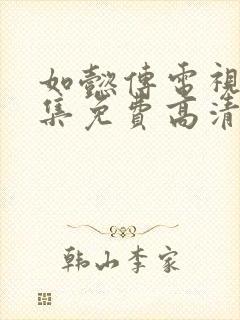 如懿傳電視
集免費高清
韩山李家